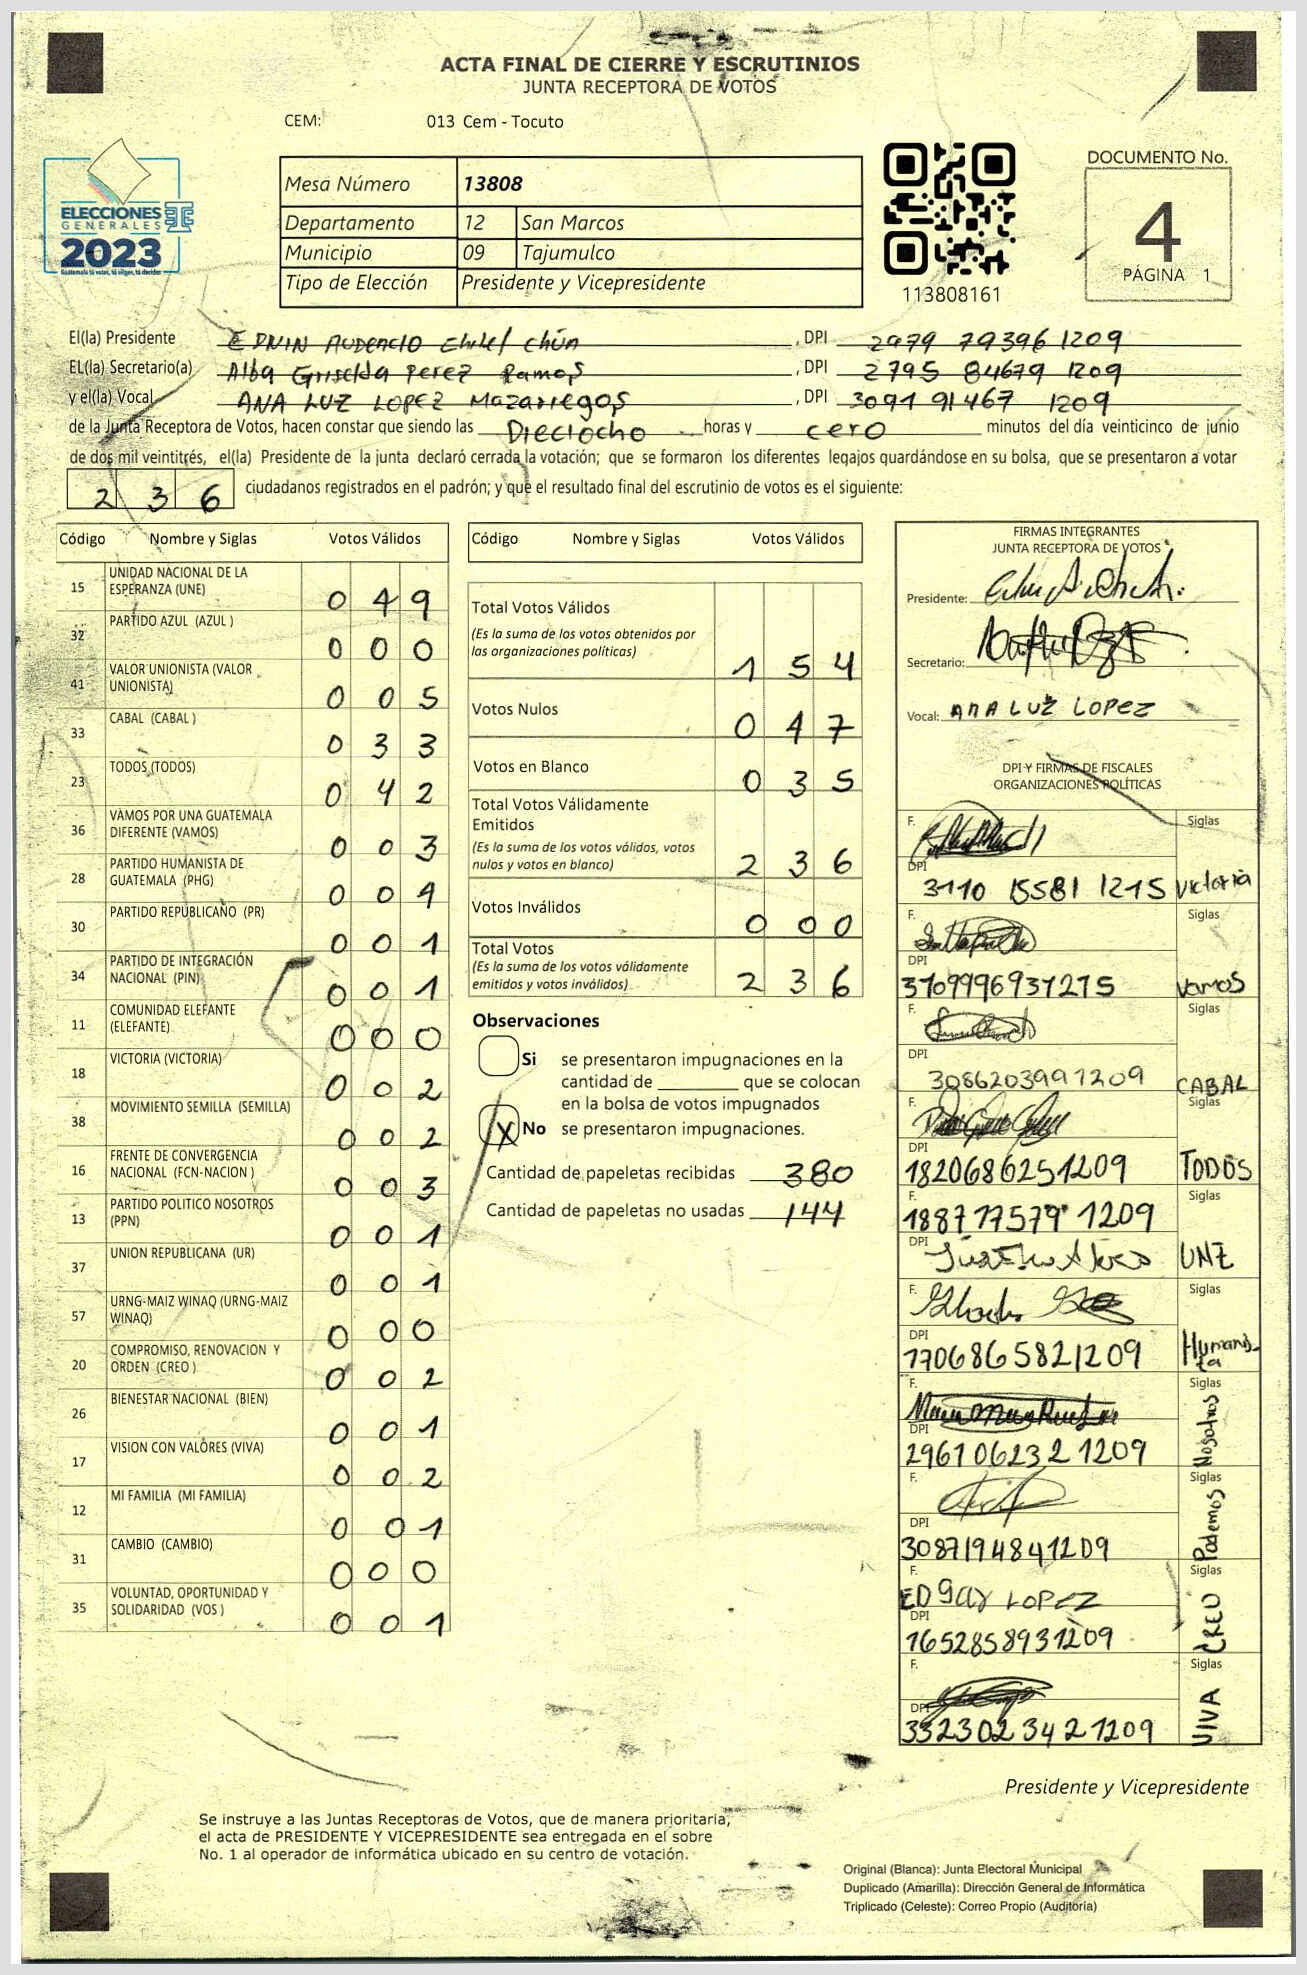 ACTA FINAL DE CIERRE Y ESCRUTINIOS
JUNTA RECEPTORA DE VOTOS
CEM: 013 Cem - Tocuto
ELECCIONES
GENERALES
2023
Guatemala tú votas, tú eliges, tú decides
Mesa Número 13808
Departamento 12 San Marcos
Municipio 09 Tajumulco
Tipo de Elección Presidente y Vicepresidente
113808161
DOCUMENTO No.
4
PÁGINA 1
El(la) Presidente EDNIN AUDENCIO Chilel Chún , DPI 2979 79396 1209
EL(la) Secretario(a) Alba Griselda Perez Ramos , DPI 2795 84679 1209
y el(la) Vocal ANA LUZ LOPEZ Mazariegos , DPI 3091 91467 1209
de la Junta Receptora de Votos, hacen constar que siendo las Dieciocho horas y cero minutos del día veinticinco de junio
de dos mil veintitrés, el(la) Presidente de la junta declaró cerrada la votación; que se formaron los diferentes legajos guardándose en su bolsa, que se presentaron a votar
2 3 6 ciudadanos registrados en el padrón; y que el resultado final del escrutinio de votos es el siguiente:
Código Nombre y Siglas Votos Válidos
15 UNIDAD NACIONAL DE LA ESPERANZA (UNE) 0 4 9
32 PARTIDO AZUL (AZUL ) 0 0 0
41 VALOR UNIONISTA (VALOR UNIONISTA) 0 0 5
33 CABAL (CABAL ) 0 3 3
23 TODOS (TODOS) 0 4 2
36 VAMOS POR UNA GUATEMALA DIFERENTE (VAMOS) 0 0 3
28 PARTIDO HUMANISTA DE GUATEMALA (PHG) 0 0 4
30 PARTIDO REPUBLICANO (PR) 0 0 1
34 PARTIDO DE INTEGRACIÓN NACIONAL (PIN) 0 0 1
11 COMUNIDAD ELEFANTE (ELEFANTE) 0 0 0
18 VICTORIA (VICTORIA) 0 0 2
38 MOVIMIENTO SEMILLA (SEMILLA) 0 0 2
16 FRENTE DE CONVERGENCIA NACIONAL (FCN-NACION ) 0 0 3
13 PARTIDO POLITICO NOSOTROS (PPN) 0 0 1
37 UNION REPUBLICANA (UR) 0 0 1
57 URNG-MAIZ WINAQ (URNG-MAIZ WINAQ) 0 0 0
20 COMPROMISO, RENOVACION Y ORDEN (CREO ) 0 0 2
26 BIENESTAR NACIONAL (BIEN) 0 0 1
17 VISION CON VALORES (VIVA) 0 0 2
12 MI FAMILIA (MI FAMILIA) 0 0 1
31 CAMBIO (CAMBIO) 0 0 0
35 VOLUNTAD, OPORTUNIDAD Y SOLIDARIDAD (VOS ) 0 0 1
Código Nombre y Siglas Votos Válidos
Total Votos Válidos
(Es la suma de los votos obtenidos por
las organizaciones políticas) 1 5 4
Votos Nulos 0 4 7
Votos en Blanco 0 3 5
Total Votos Válidamente
Emitidos
(Es la suma de los votos válidos, votos
nulos y votos en blanco) 2 3 6
Votos Inválidos 0 0 0
Total Votos
(Es la suma de los votos válidamente
emitidos y votos inválidos) 2 3 6
Observaciones
Si se presentaron impugnaciones en la
cantidad de ________ que se colocan
en la bolsa de votos impugnados
X No se presentaron impugnaciones.
Cantidad de papeletas recibidas 380
Cantidad de papeletas no usadas 144
FIRMAS INTEGRANTES
JUNTA RECEPTORA DE VOTOS
Presidente:
Secretario:
Vocal: ANA LUZ LOPEZ
DPI Y FIRMAS DE FISCALES
ORGANIZACIONES POLÍTICAS
F. Siglas
DPI 3110 15581 1215 Victoria
F. Siglas
DPI 3709996931215 Vamos
F. Siglas
DPI 3086203991209 CABAL
F. Siglas
DPI 1820686251209 TODOS
F. 1887 77579 1209 Siglas
DPI UNE
F. Siglas
DPI 1706865821209 Humanista
F. Siglas
DPI 2961062321209 Nosotros
F. Siglas
DPI 3087194841209 Podemos
F. EDgar LOPEZ Siglas
DPI 1652858931209 CREO
F. Siglas
DPI 3323023421209 VIVA
Presidente y Vicepresidente
Se instruye a las Juntas Receptoras de Votos, que de manera prioritaria,
el acta de PRESIDENTE Y VICEPRESIDENTE sea entregada en el sobre
No. 1 al operador de informática ubicado en su centro de votación.
Original (Blanca): Junta Electoral Municipal
Duplicado (Amarilla): Dirección General de Informática
Triplicado (Celeste): Correo Propio (Auditoria)